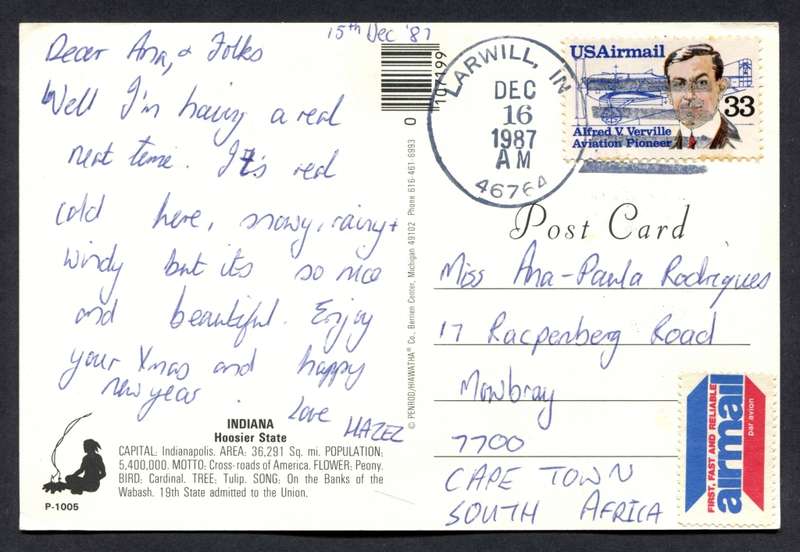 15th Dec '87
Dear Ana, & Folks
Well I'm having a real
neat time. It's real
cold here, snowy, rainy +
windy but its so nice
and beautiful. Enjoy
your Xmas and happy
new year. Love HAZEL
INDIANA
Hoosier State
CAPITAL: Indianapolis. AREA: 36,291 Sq. mi. POPULATION:
5,400,000. MOTTO: Cross-roads of America. FLOWER: Peony.
BIRD: Cardinal. TREE: Tulip. SONG: On the Banks of the
Wabash. 19th State admitted to the Union.
P-1005
© PENROD/HIAWATHA® Co., Berrien Center, Michigan 49102 Phone 616-461-6993
0
107199
LARWILL, IN
DEC
16
1987
AM
46764
USAirmail
33
Alfred V. Verville
Aviation Pioneer
Post Card
Miss Ana-Paula Rodrigues
17 Racpenberg Road
Mowbray
7700
CAPE TOWN
SOUTH AFRICA
FIRST, FAST AND RELIABLE
airmail
par avion